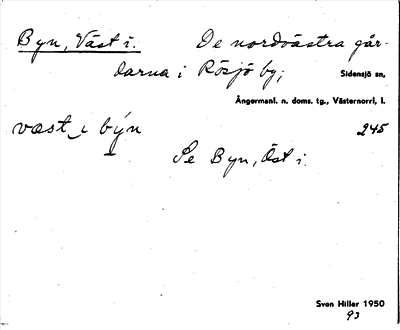 Byn, Väst i. De nordvästra går-
darna i Rösjö by; Sidensjö sn,
Ångermanl. n. doms. tg., Västernorrl, l.
væst i býn 245
Se Byn, Öst i.
Sven Hiller 1950
93